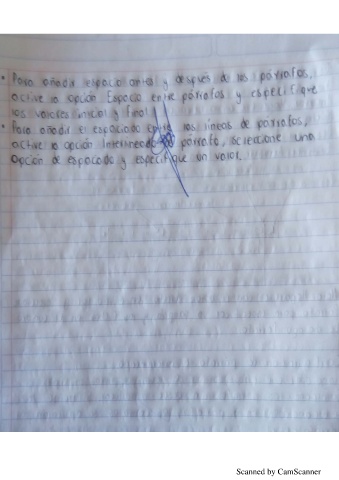 • Para añadir espacio antes y despues de los párrafos,
active la opción Espacio entre párrafos y especifique
los valores inicial y final.
• Para añadir el espaciado entre las lineas de parrafos,
active la opción Interlineado párrafo, seleccione una
opción de espaciado y especifique un valor.
Scanned by CamScanner